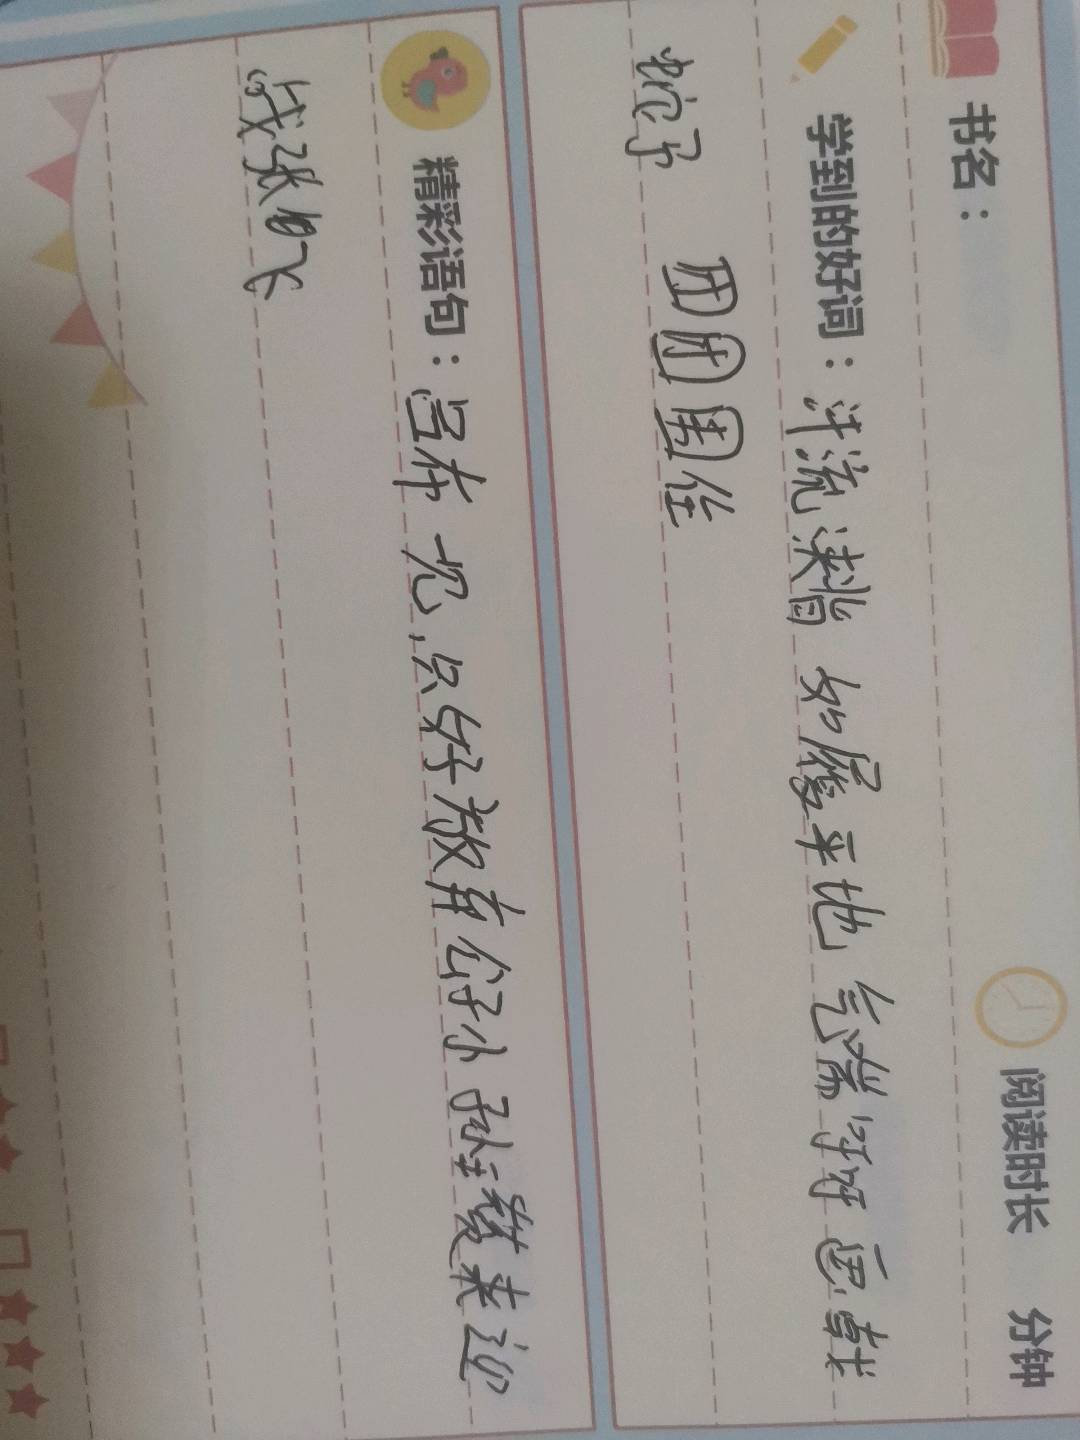 书名：
阅读时长 分钟
学到的好词：汗流浃背 如履平地 气喘吁吁 画戟
蛇矛 团团围住
精彩语句：吕布一见，只好放弃公孙瓒来迎
战张飞